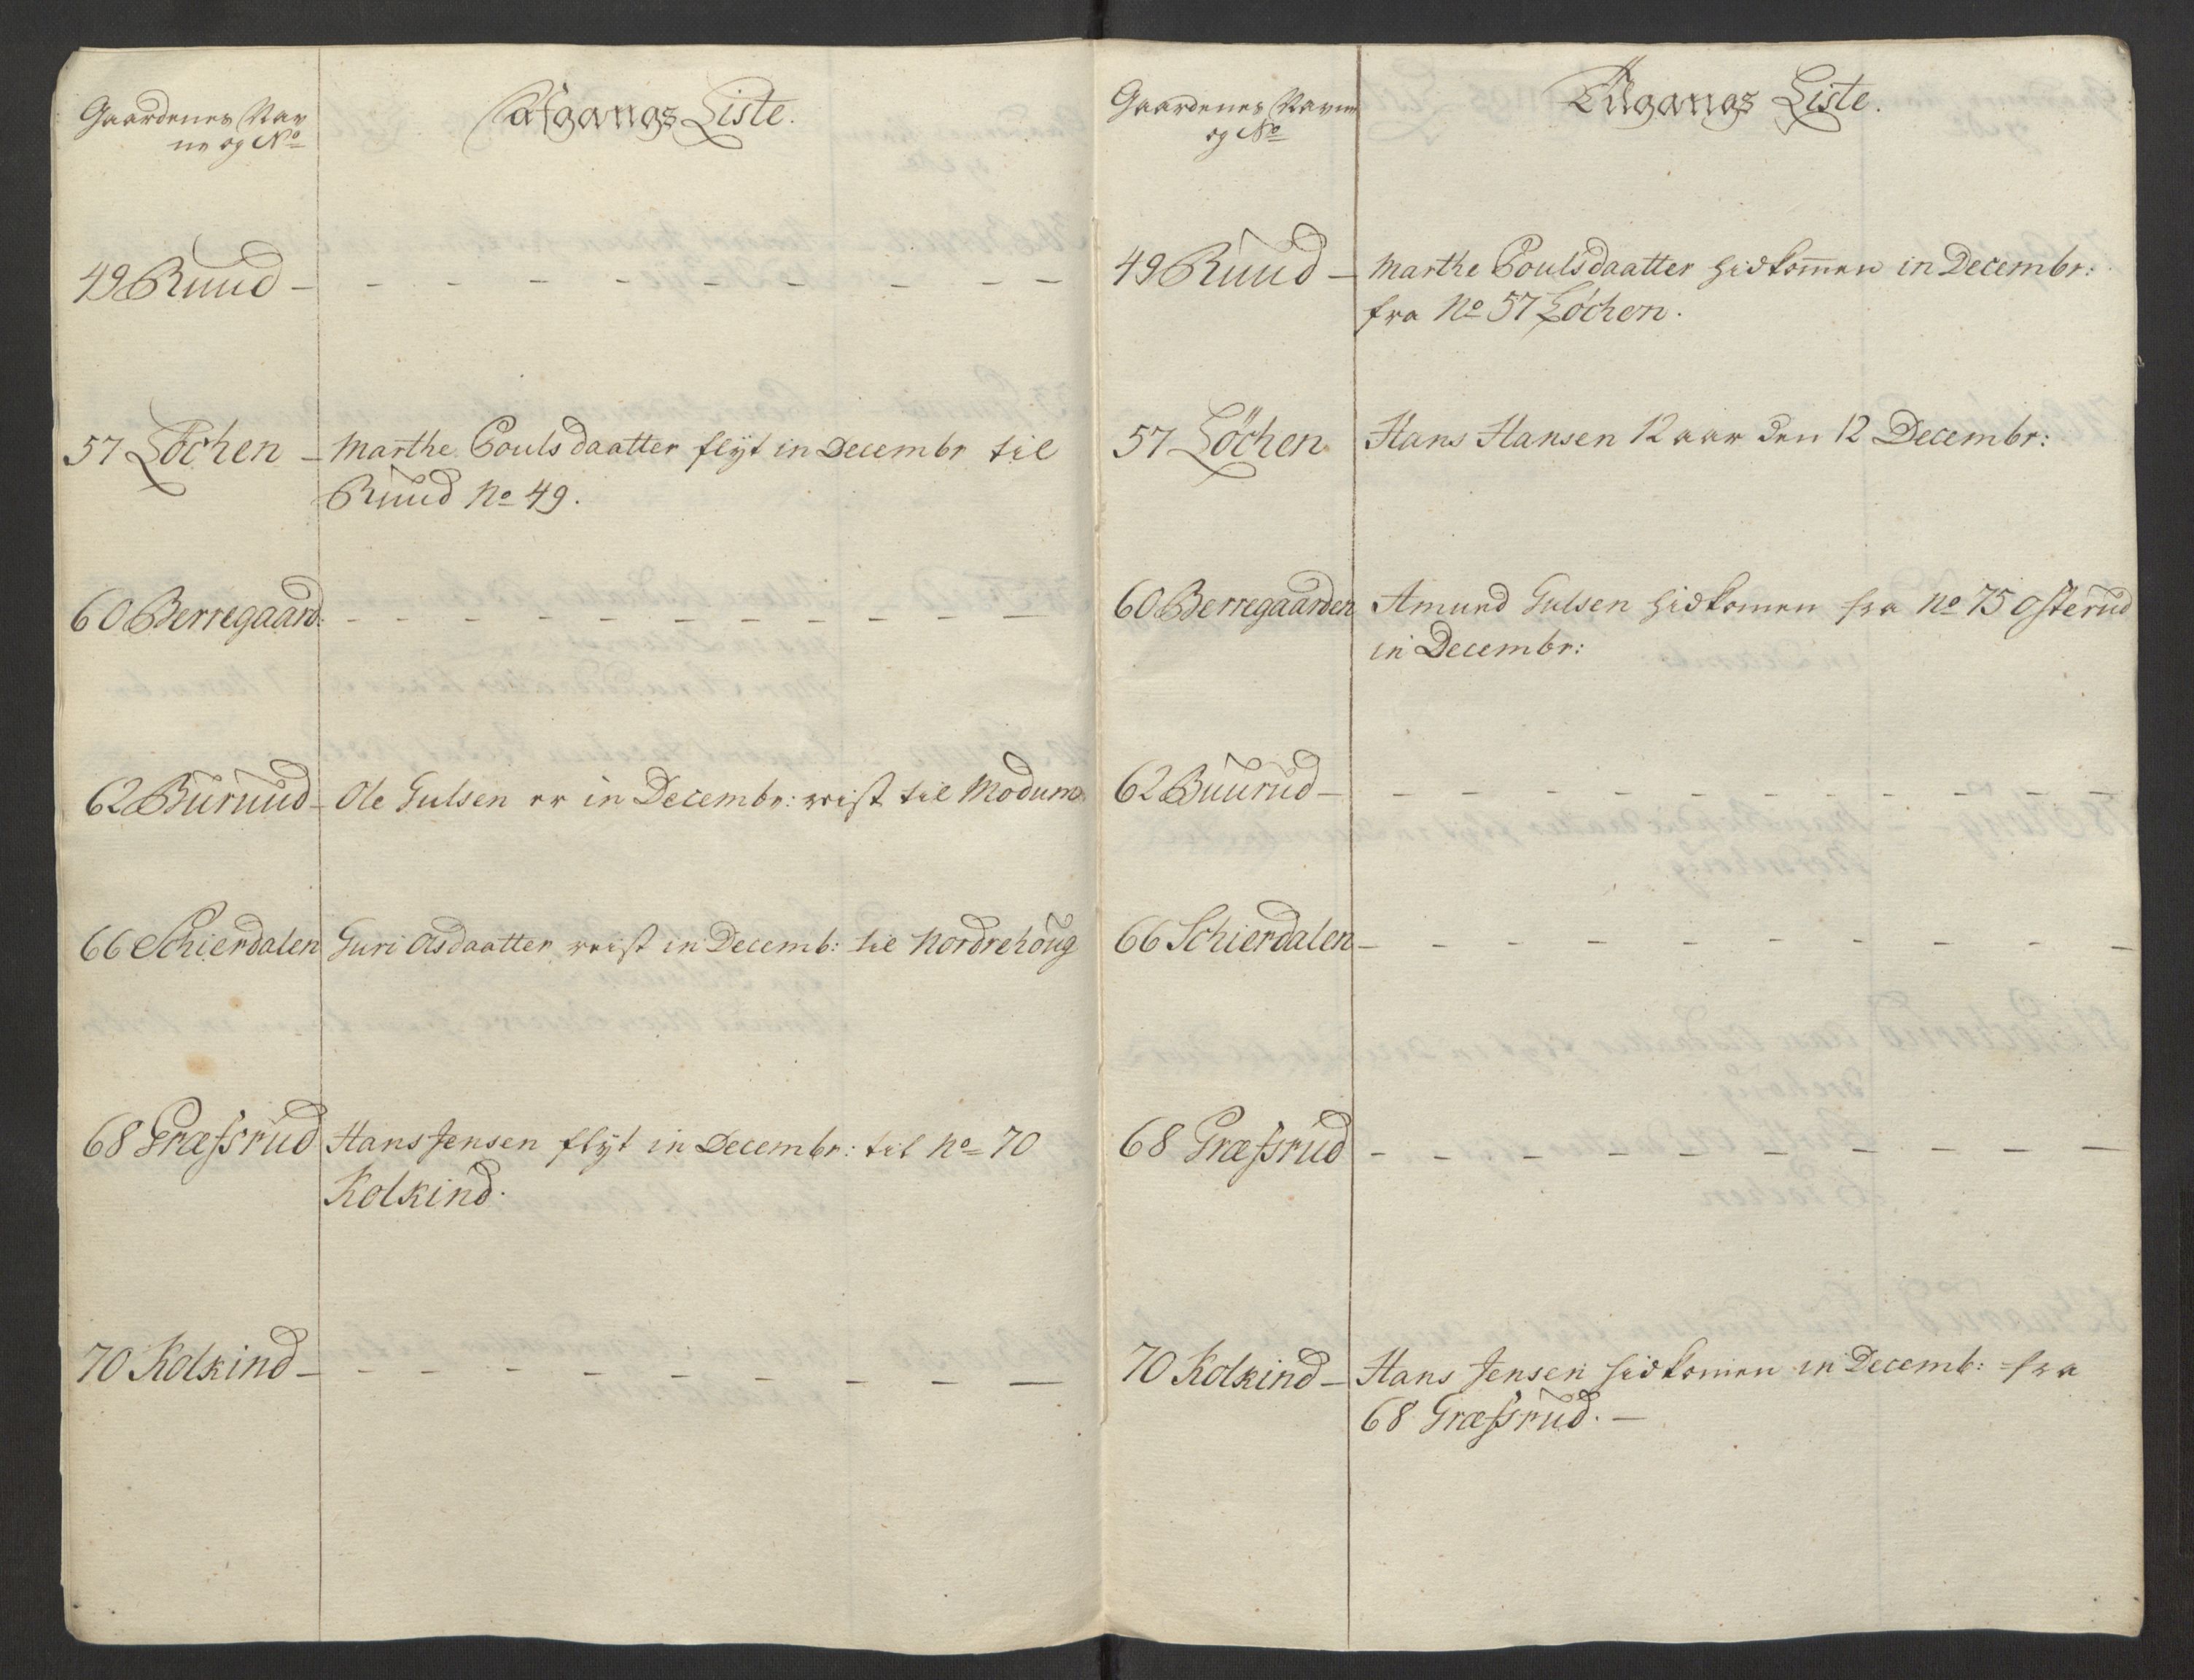 Gaardenes Nav
ne og No
Afgangs Liste.
49 Ruud - - - - - - - - - -
57 Löchen - Marthe Poulsdaatter flÿt in Decembr til
Ruud No 49.
60 Berregaard: - - - - - - - - - - -
62 Buruud - Ole Gulsen er in Decembr: reist til Modum.
66 Schierdalen Guri Olsdaatter reist in Decemb: til Nordrehoug
68 Græfsrud Hans Jensen flÿt in Decembr: til No 70
Kolkind.
70 Kolkind - - - - - - - - - -
Gaardenes Navne
og No
Tilgangs Liste.
49 Ruud - Marthe Poulsdaatter hidkom̄en in Decembr:
fra No 57 Löchen.
57 Löchen Hans Hansen 12 aar den 12 Decembr:
60 Berregaarden Amund Gulsen hidkomen fra No 75 Osterud
in Decembr:
62 Buurud - - - - - - - - - - - - -
66 Schierdalen - - - - - - - - - -
68 Græfsrud - - - - - - - - - -
70 Kolkind - Hans Jensen hidkomen in Decemb: fra
68 Græfsrud. -